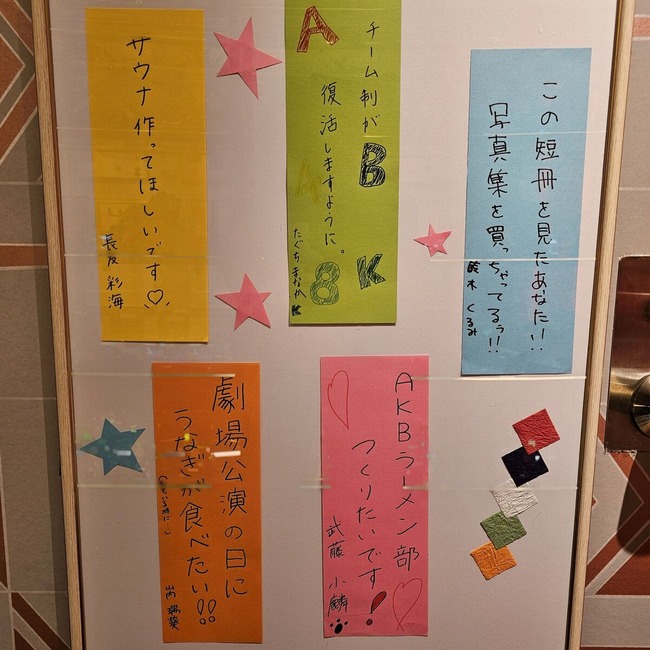 この短冊を見たあなたい!!
写真集を買っちゃってるぅ!!
鈴木くるみ
チーム制が
復活しますように。
たぐちまなか K
A
B
K
A
8
サウナ作ってほしいです♡
長友彩海
AKBラーメン部
つくりたいです!
武藤小麟
劇場公演の日に
うなぎが食べたい!!
山内瑞葵